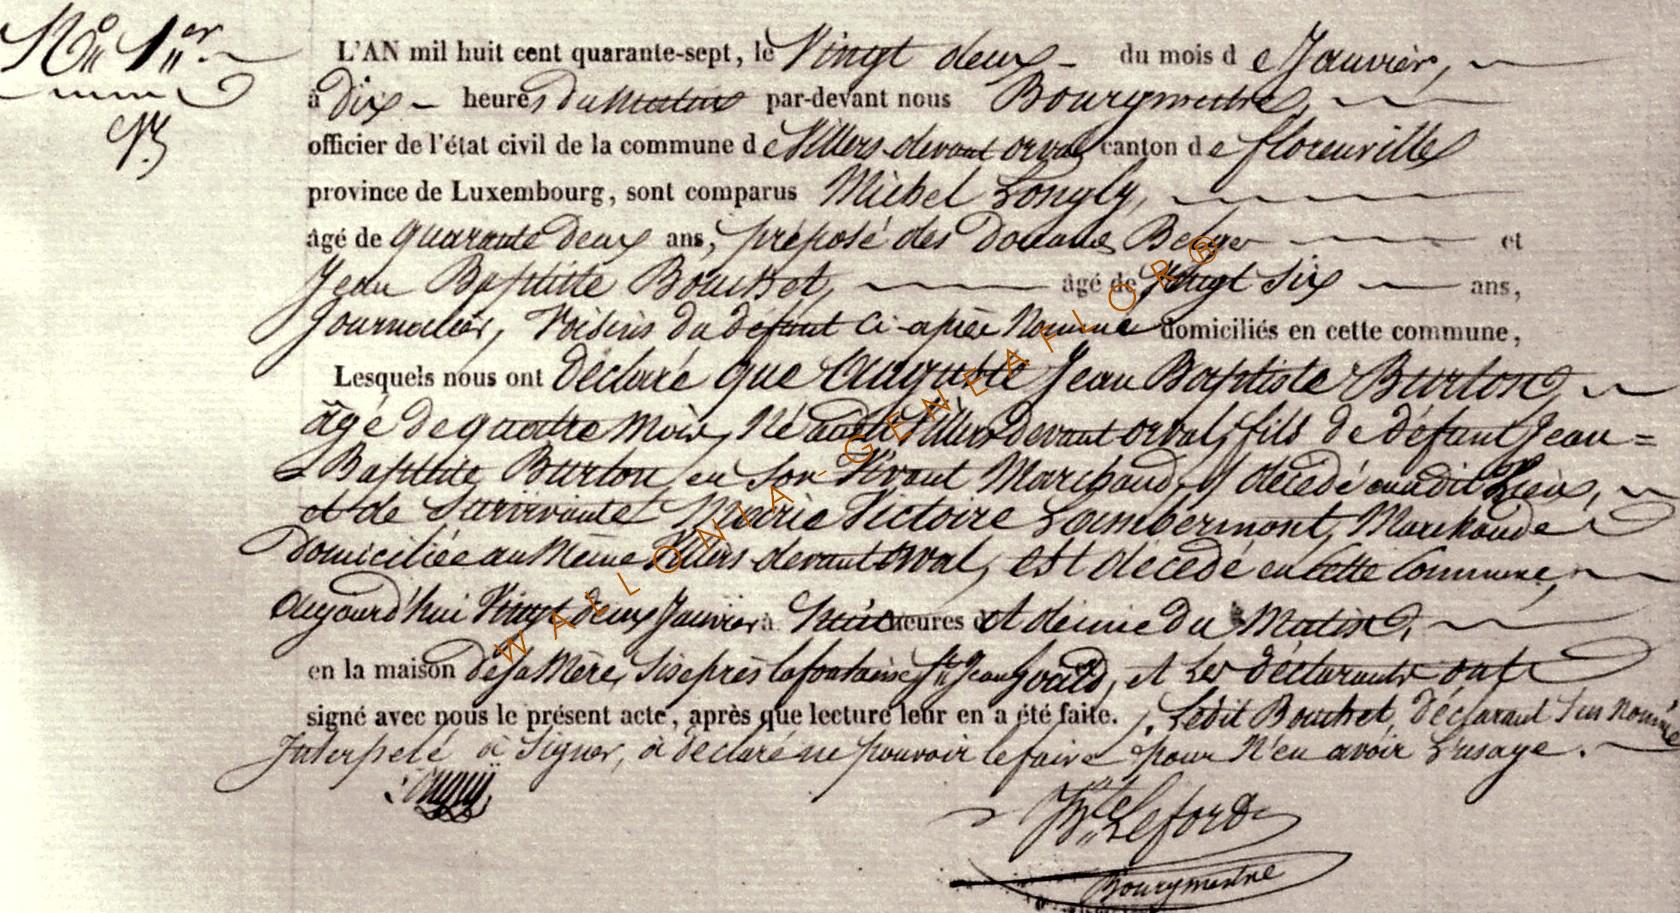 N° 1er
L'AN mil huit cent quarante-sept, le Vingt deux du mois de Janvier,
à Dix heures du Matin par-devant nous Bourgmestre,
officier de l'état civil de la commune de Villers devant orval canton de florenville
province de Luxembourg, sont comparus Michel Longly,
âgé de quarante deux ans, préposé des Douane Belge et
Jean Baptiste Bouchet, âgé de Vingt Six ans,
Journalier, Voisins du défunt Ci-après Nommé domiciliés en cette commune,
Lesquels nous ont Déclaré que Auguste Jean Baptiste Burton,
âgé de quatre Mois, Né audit Villers devant orval, fils de défunt Jean=
=Baptiste Burton, en Son Vivant Marchand, décédé audit Lieu,
et de Survivante Marie Victoire Lambermont, Marchande
Domiciliée au Même Villers devant orval, est décédé en Cette Commune,
Aujourd'hui Vingt deux Janvier à huit heures et demie du Matin,
en la maison de sa Mère, Sise près la fontaine St Jean, et Les Déclarants ont
signé avec nous le présent acte, après que lecture leur en a été faite. Ledit Bouchet, Déclarant Sus Nommé
Interpelé à Signer, à déclaré ne pouvoir le faire pour N'en avoir L'usage.
Longly
Leford
Bourgmestre
WALLONIA-GENEAFLOR®